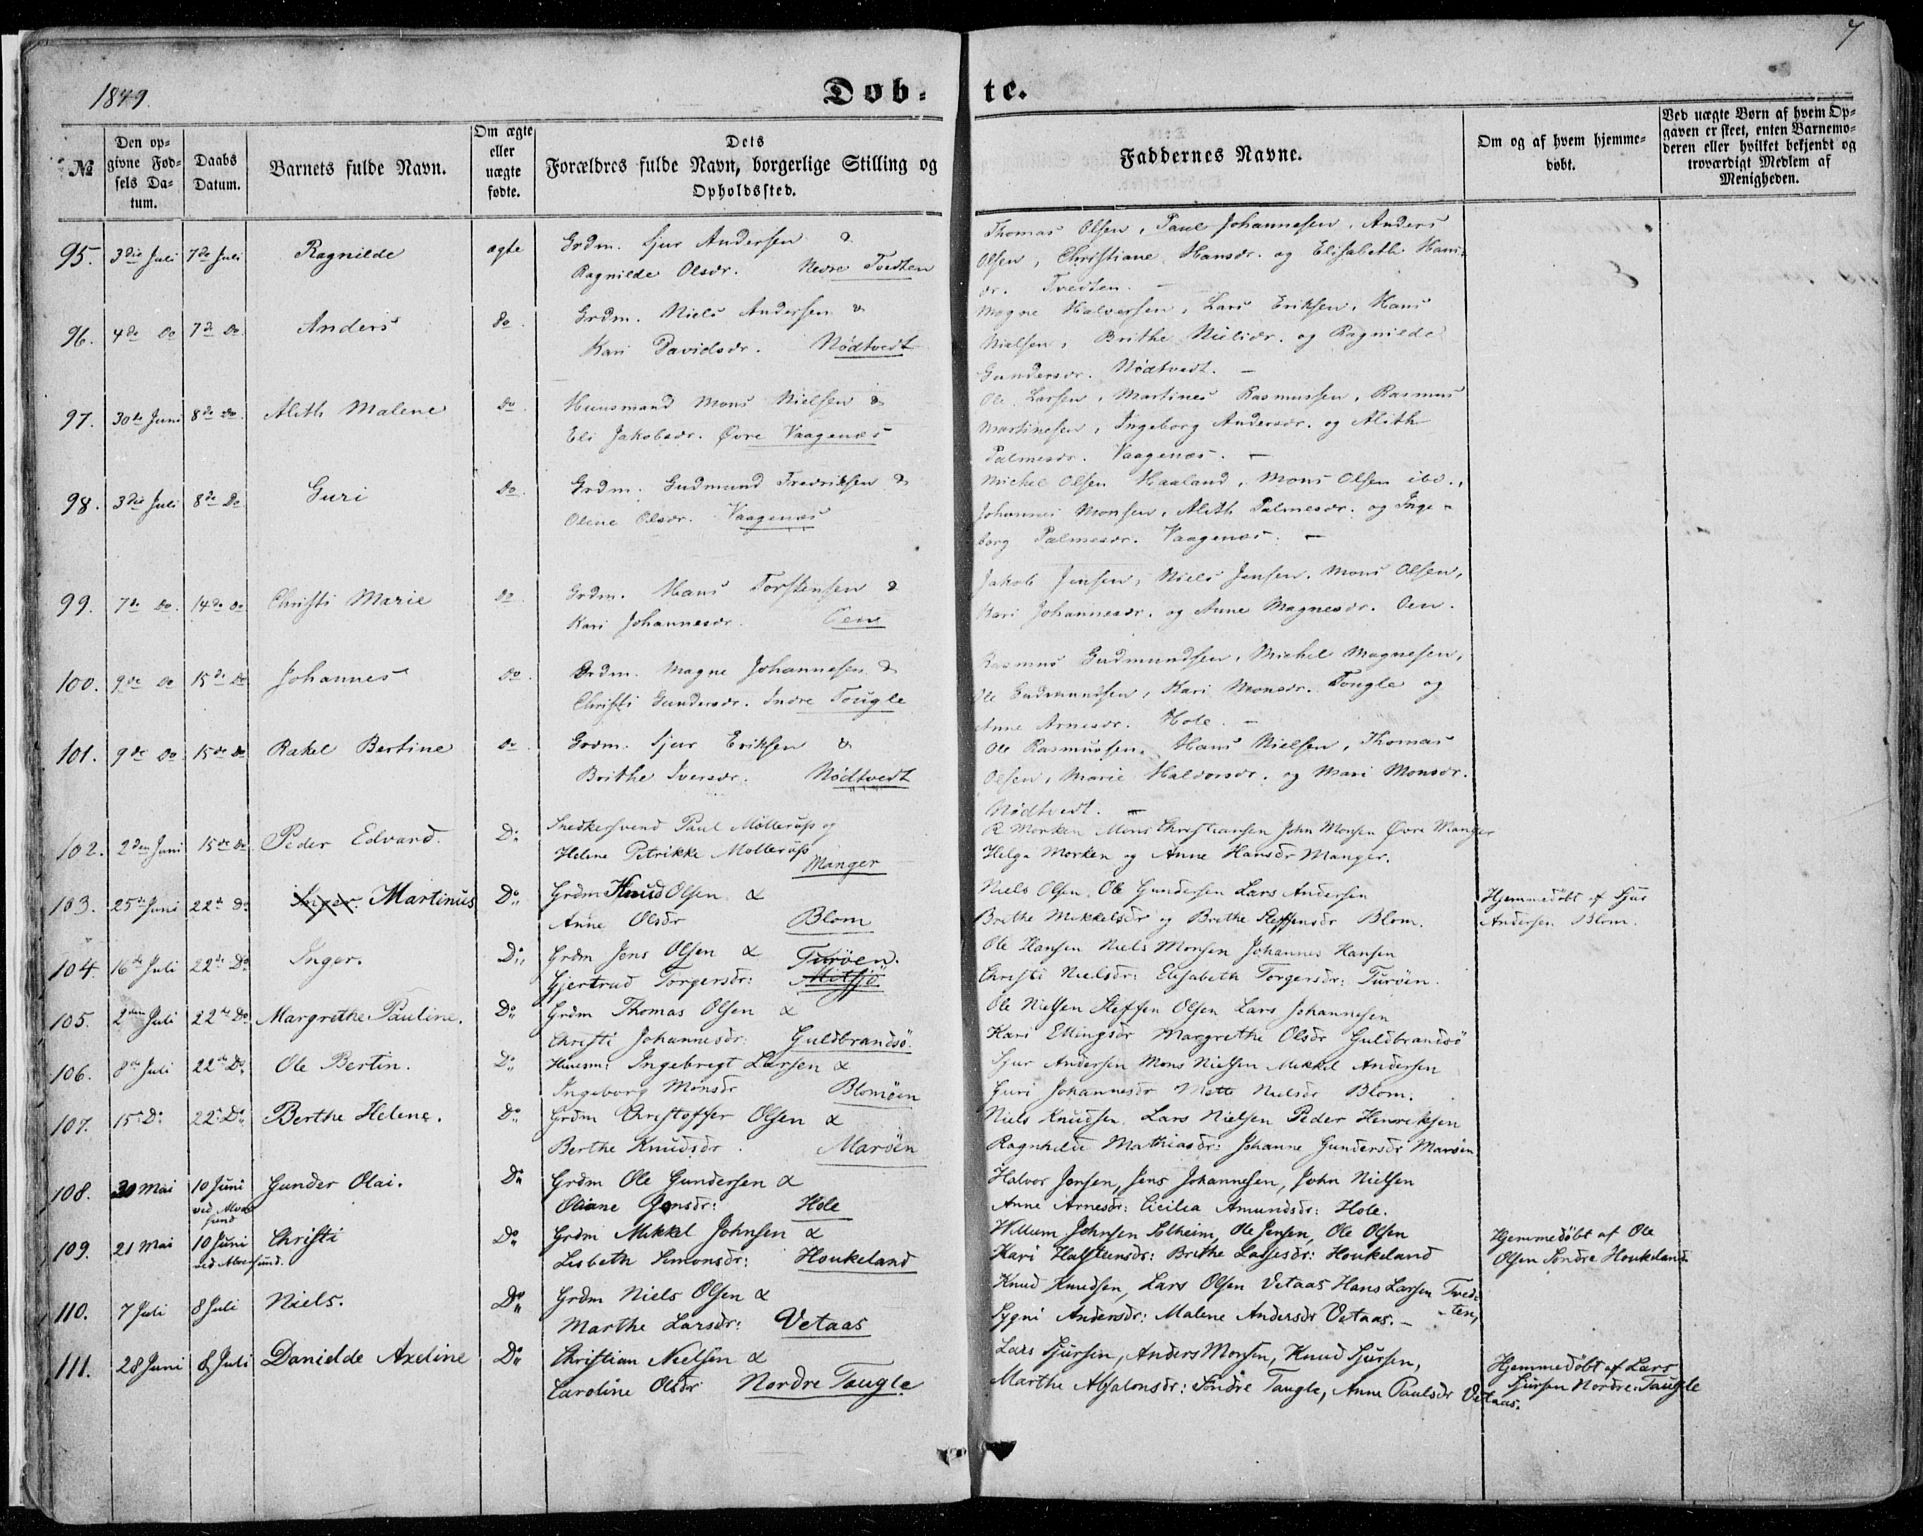 7
1849.
Døb- te.
№
Den opgivne Fødsels Datum.
Daabs Datum.
Barnets fulde Navn.
Om ægte eller uægte fødte.
Dets Forældres fulde Navn, borgerlige Stilling og Opholdssted.
Faddernes Navne.
Om og af hvem hjemmedøbt.
Ved uægte Børn af hvem Opgaven er skeet, enten Barnemoderen eller hvilket bekjendt og troværdigt Medlem af Menigheden.
95. 3die Juli 7de Juli Ragnilde ægte Grdm. Sjur Andersen & Thomas Olsen, Paul Johannesen, Anders
Ragnilde Olsdr. Nedre Tvedten Olsen, Christiane Hansdr. og Elisabeth Hans-
dr. Tvedten. —
96. 4de Do 7de Do Anders Do Grdm. Niels Andersen & Magne Halversen, Lars Eriksen, Hans
Kari Davidsdr. Nødtvedt Nielsen, Brithe Nielsdr. og Ragnilde
Gundersdr. Nødtvedt. —
97. 30te Juni 8de Do. Alith Malene Do Huusmand Mons Nielsen & Ole Larsen, Martines Rasmussen, Rasmus
Eli Jakobsdr. Øvre Vaagenæs Martinesen, Ingeborg Andersdr. og Alith
Palmesdr. Vaagenæs. —
98. 3die Juli 8de Do Guri Do Grdm. Gudmund Fredriksen & Michel Olsen Haaland, Mons Olsen ibd.,
Olene Olsdr. Vaagenæs Johannes Monsen, Alith Palmesdr. og Inge-
borg Palmesdr. Vaagenæs. —
99. 7de Do. 14de Do Christi Marie Do Grdm. Hans Torstensen & Jakob Jensen, Niels Jensen, Mons Olsen,
Kari Johannesdr. Oen Kari Johannesdr. og Anne Magnesdr. Oen.
100. 9de Do 15de Do Johannes Do Grdm. Magne Johannesen & Rasmus Gudmundsen, Michel Magnesen,
Christi Gundersdr. Indre Tougle Ole Gudmundsen, Kari Monsdr. Tougle og
Anne Arnesdr. Hole. —
101. 9de Do 15de Do Rakel Bertine Do Grdm. Sjur Eriksen & Ole Rasmussen, Hans Nielsen, Thomas
Brithe Iversdr. Nødtvedt Olsen, Marie Halvorsdr. og Mari Monsdr.
Nødtvedt. —
102. 2den Juni 15de Do Peder Edvard. Do Snedkersvend Paul Møllerup og R Morken Mons Christiansen John Monsen Øvre Manger
Helene Petrikke Møllerup Manger Helga Morken og Anne Hansdr Manger.
103. 25de Juni 22de Do Inger. Martinus Do Grdm Knud Olsen & Niels Olsen, Ole Gundersen Lars Andersen Hjemmedøbt af Sjur
Anne Olsdr Blom Brethe Mikkelsdr og Brethe Steffensdr Blom. Andersen Blom.
104. 16de Juli 22de Do Inger. Do Grdm Jens Olsen & Turøen. Ole Hansen Niels Monsen Johannes Hansen
Gjertrud Torgersdr: Mitsjø Christi Nielsdr: Elisabeth Torgersdr: Turøen.
105. 2den Juli 22de Do Margrethe Pauline. Do Grdm Thomas Olsen & Ole Nielsen Steffen Olsen Lars Johannesen
Christi Johannesdr: Guldbrandsø. Kari Ellingsdr Margrethe Olsdr Guldbrandsø
106. 8de Juli 22de Do Ole Bertin. Do Huusm: Ingebregt Larsen & Sjur Andersen Mons Nielsen Mikkel Andersen
Ingeborg Monsdr Blomøen Guri Johannesdr Mette Nielsdr Blom.
107. 15de Do 22de Do Berthe Helene. Do Grdm Christoffer Olsen & Niels Knudsen. Lars Nielsen Peder Henriksen
Berthe Knudsdr. Marøen Ragnhilde Mathiasdr: Johanne Gundersdr Marøen
108. 30 Mai 10 Juni ved Alversund Gunder Olai. Do Grdm Ole Gundersen & Halvor Jensen, Jens Johannesen, John Nielsen
Oliane Jensdr: Hole Anne Arnesdr: Cicilia Amundsdr: Hole.
109. 21 Mai 10 Juni ved Alversund. Christi Do Grdm Mikkel Johnsen & Willum Johnsen Solheim, Ole Jensen, Ole Olsen Hjemmedøbt af Ole
Lisbeth Simonsdr: Houkeland Kari Halstensdr: Brithe Lassesdr: Houkeland Olsen Søndre Houkeland.
110. 7 Juli 8 Juli Niels. Do Grdm Niels Olsen & Knud Knudsen, Lars Olsen Vetaas Hans Larsen Tved-
Marthe Larsdr: Vetaas Sygni Andersdr: Malene Andersdr Vetaas. — -ten,
111. 28 Juni 8 Juli Danielde Axeline Do Christian Nielsen & Lars Sjursen, Anders Monsen, Knud Sjursen, Hjemmedøbt af Lars
Caroline Olsdr Nordre Taugle Marthe Absalonsdr: Søndre Taugle, Anne Paulsdr Vetaas. Sjursen Nordre Taugle